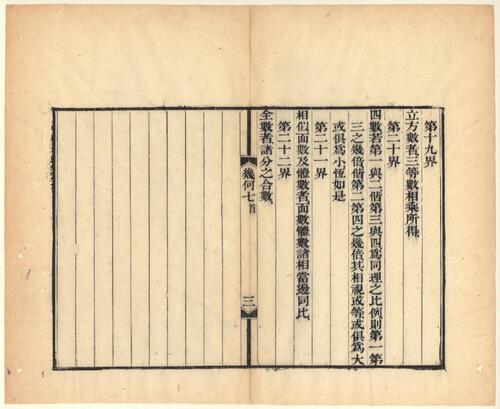 第十九界
立方數者三等數相乘所得
第二十界
四數若第一與二偕第三與四爲同理之比例則第一第
三之幾倍偕第二第四之幾倍其相視或等或俱爲大
或俱爲小恆如是
第二十一界
相似面數及體數者面數體數諸相當邊同比
第二十二界
全數者諸分之合數
幾何七首
三